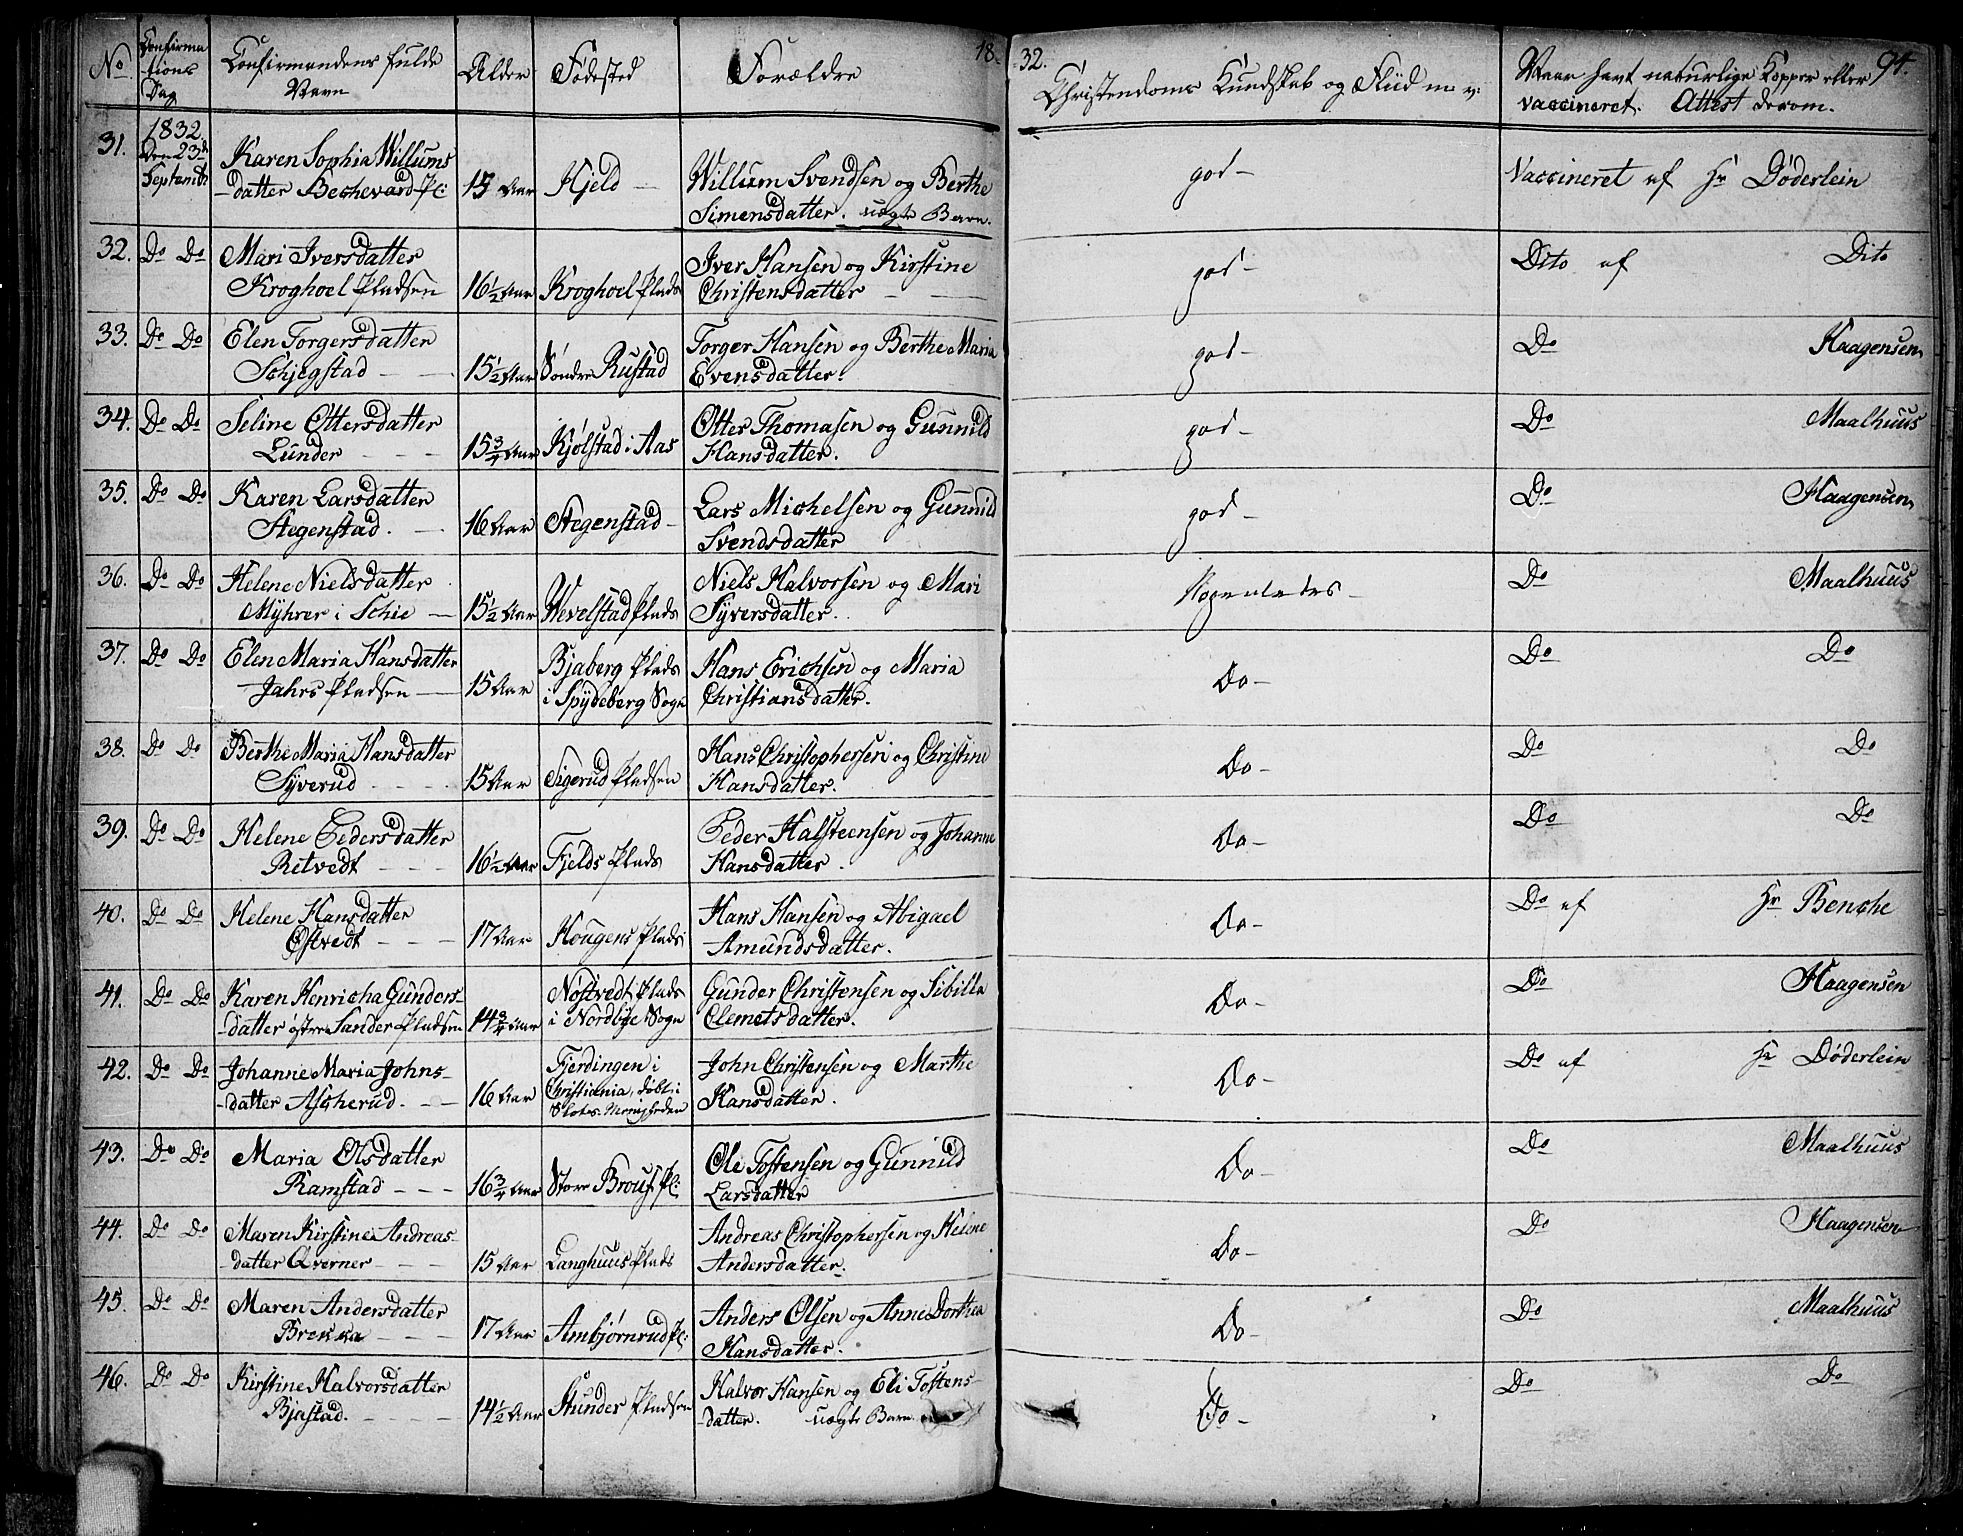 No. Confirma Confirmandens fulde Alder Fødested Forældre 18
tions Navn
Dag
32. Christendoms Kundskab og Fliid m: v: 94.
Naar havt naturlige Kopper eller
vaccineret. Attest derom.
31. 1832. Karen Sophia Willums
Den 23de -datter Bechevard Pl: 15 Aar Kjeld — Willum Svendsen og Berthe god — Vaccineret af Hr Døderlein
Septembr Simensdatter. uægte Barn.
32. Do Do Mari Iversdatter Iver Hansen og Kirstine god — Dito af Dito
Kroghoel Pladsen 16½ Aar Kroghoel Plads Christensdatter —
33. Do Do Elen Torgersdatter Torger Hansen og Berthe Maria god — Do Haagensen
Schjegstad — 15½ Aar Søndre Rustad Evensdatter.
34. Do Do Seline Ottersdatter Otter Thomasen og Gunnild god — Do Maalhuus
Lunder - - - 15¾ Aar Kjølstad i Aas Hansdatter.
35. Do Do Karen Larsdatter Lars Michelsen og Gunnild god — Do Haagensen
Stegenstad. — 16 Aar Stegenstad — Svendsdatter
36. Do Do Helene Nielsdatter Niels Halvorsen og Mari Nogenledes — Do Maalhuus
Myhrer i Schie — 15½ Aar Wevelstad Plads Syversdatter.
37. Do Do Elen Maria Hansdatter Bjaberg Plads Hans Erichsen og Maria Do — Do Do
Jahrs Pladsen — 15 Aar i Spydeberg Sogn Christiansdatter.
38. Do Do Berthe Maria Hansdatter Hans Christophersen og Christine Do — Do Do
Syverud - - - 15 Aar Sigerud Pladsen Hansdatter.
39. Do Do Helene Pedersdatter Peder Halsteensen og Johanne Do — Do Do
Retvedt - - - 16½ Aar Fjelds Plads Hansdatter.
40. Do Do Helene Hansdatter Hans Hansen og Abigael Do — Do af Hr Benche
Østvedt - - - 17 Aar Hougens Plads Amundsdatter.
41. Do Do Karen Henricha Gunders- Nøstvedt Plads Gunder Christensen og Sibilla Do — Do Haagensen
-datter østre Sander Pladsen 14¾ Aar i Nordbye Sogn Clemetsdatter.
42. Do Do Johanne Maria Johns- Fjerdingen i John Christensen og Marthe Do — Do af Hr Døderlein
-datter Ascherud. - - 16 Aar Christiania, døbt i Hansdatter.
Slots Menigheden
43. Do Do Maria Olsdatter Ole Tostensen og Gunnild Do — Do Maalhuus
Ramstad - - - 16¾ Aar Store Brous Pl: Larsdatter
44. Do Do Maren Kirstine Andreas- Andreas Christophersen og Helene Do — Do Haagensen
-datter Qverner - - - 15 Aar Langhuus Plads Andersdatter.
45. Do Do Maren Andersdatter Anders Olsen og Anne Dorthea Do — Do Maalhuus
Brekka - - - 17 Aar Ambjørnrud Pl: Hansdatter.
46. Do Do Kirstine Halvorsdatter Halvor Hansen og Eli Tostens- Do — Do Do
Bjastad. - - - 14½ Aar Stunder Pladsen -datter. uægte Barn